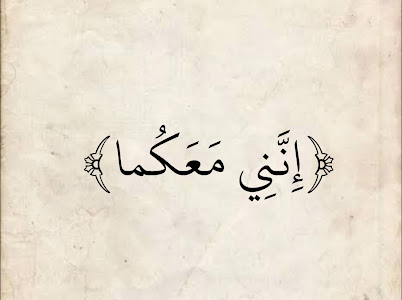 ﴿إِنَّنِي مَعَكُما﴾